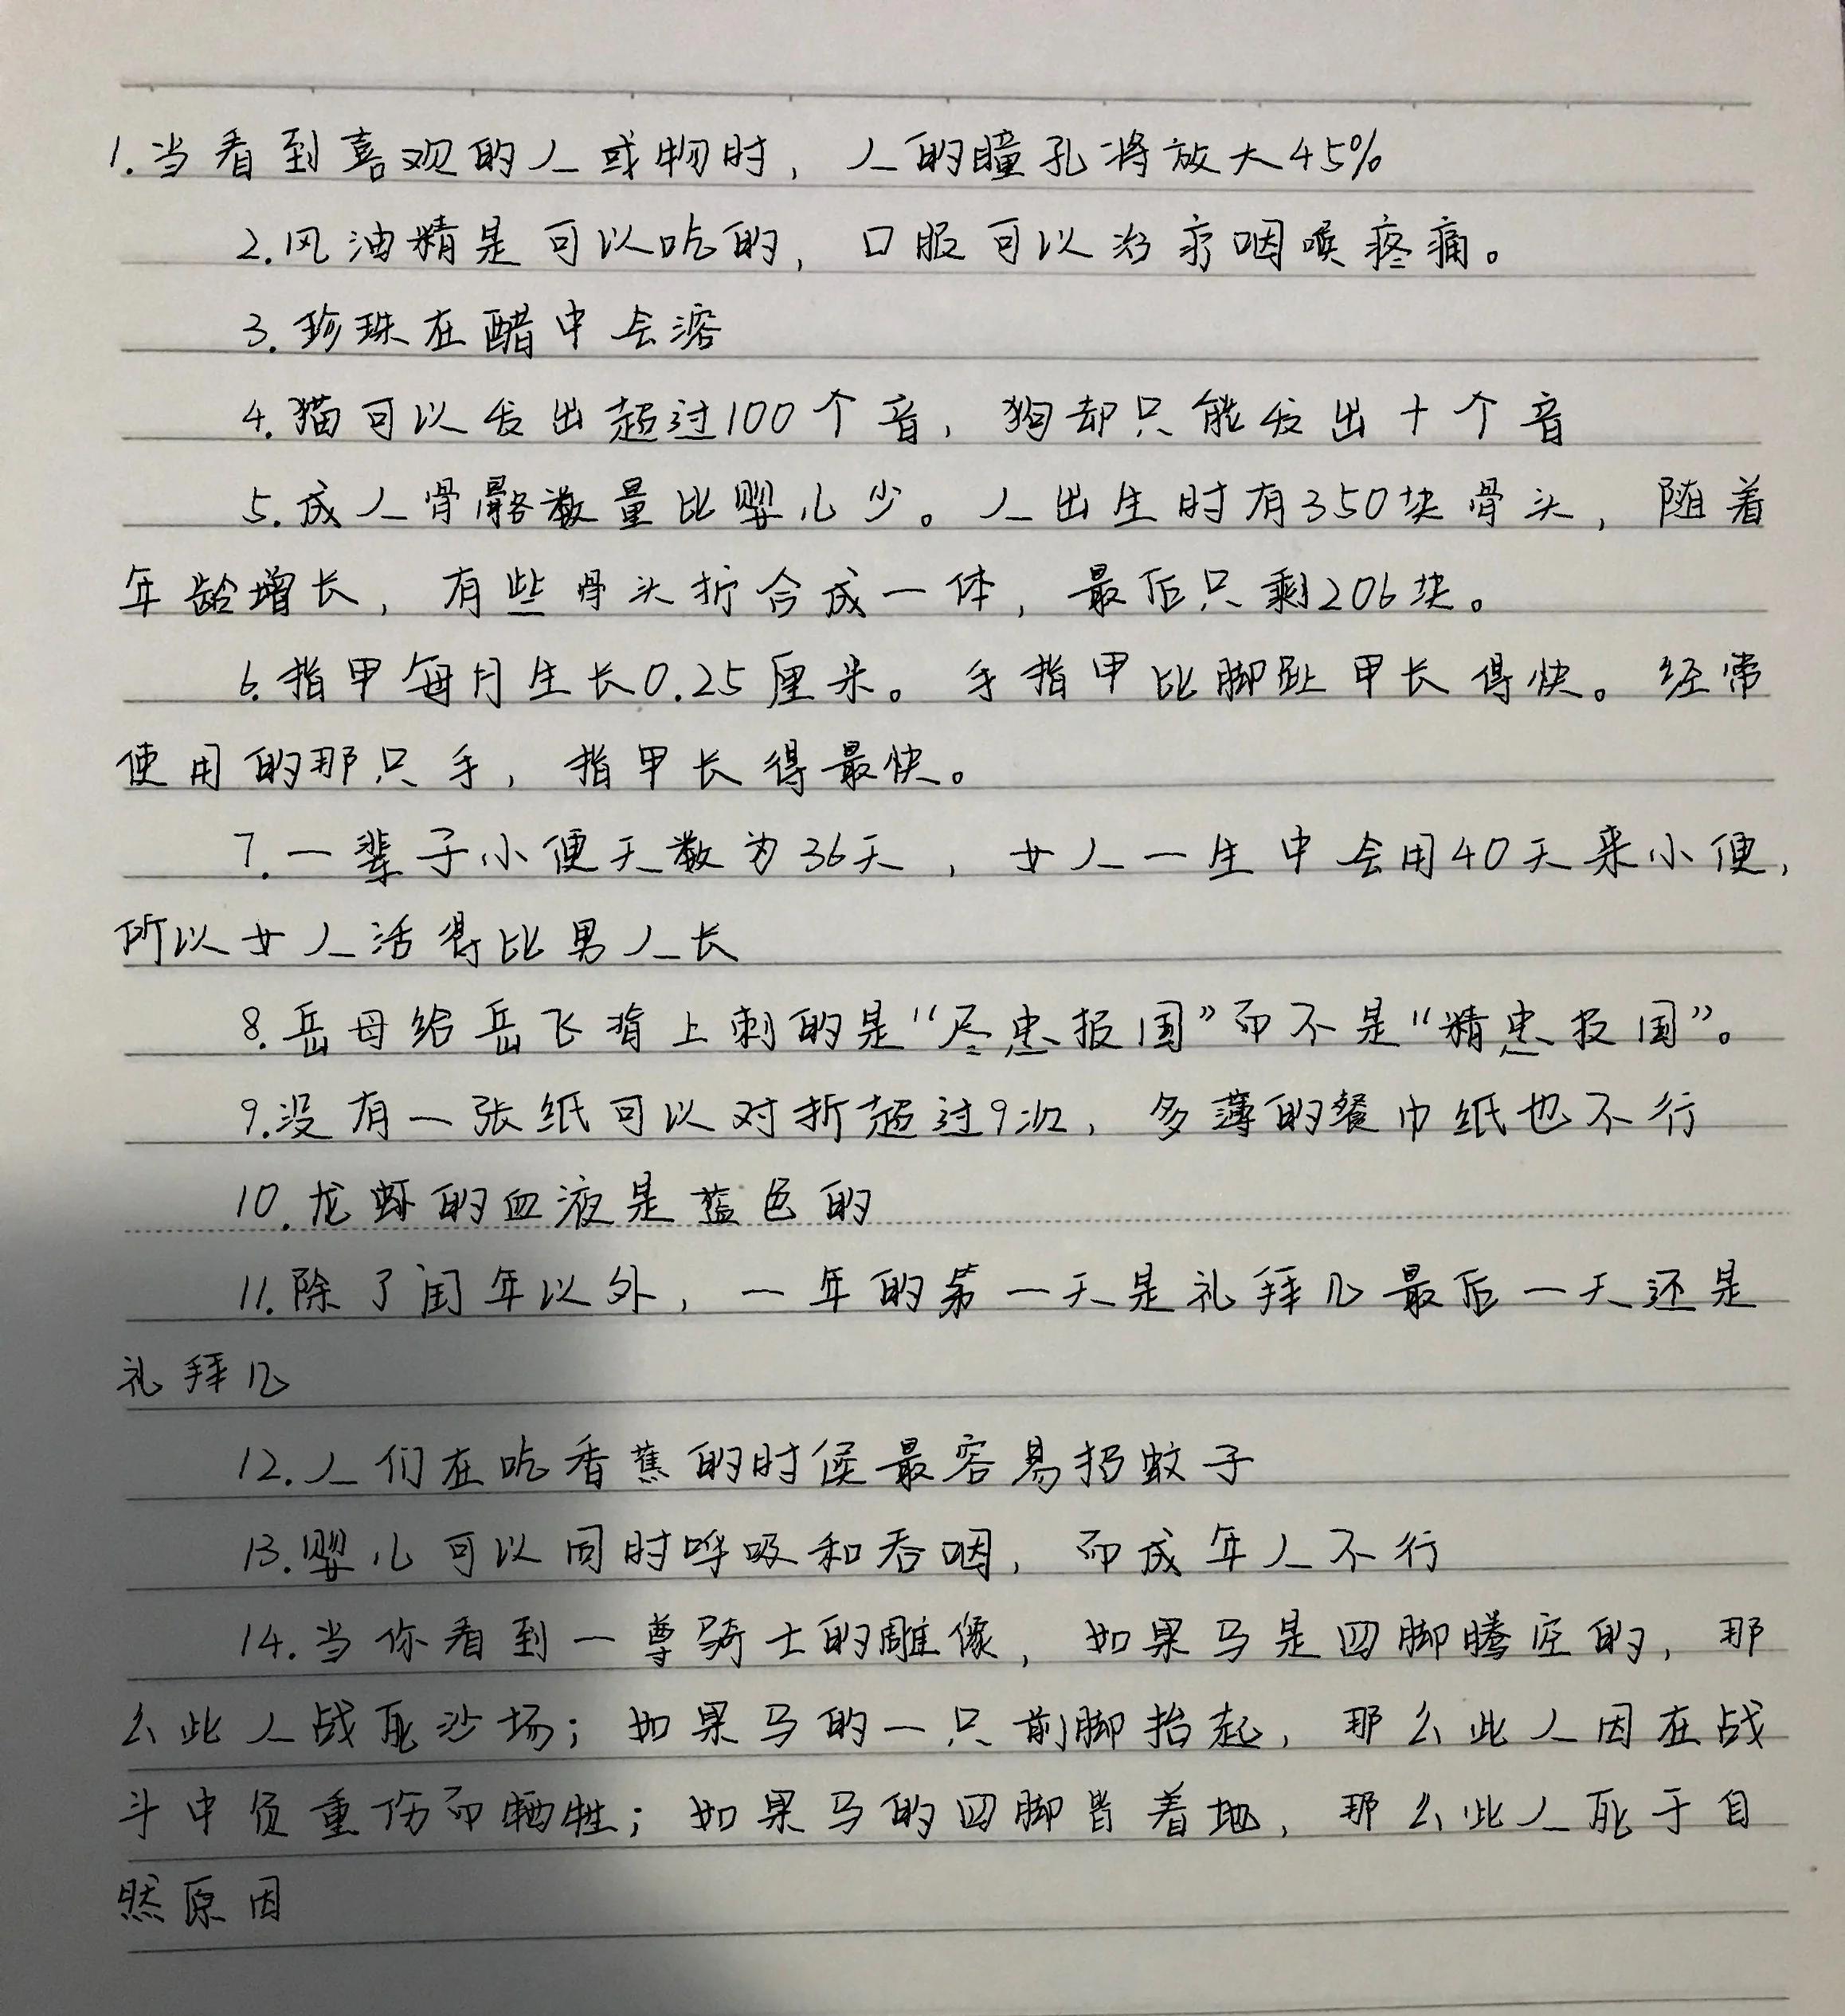 1.当看到喜观的人或物时，人的瞳孔将放大45%
2.风油精是可以吃的，口服可以治疗咽喉疼痛。
3.珍珠在醋中会溶
4.猫可以发出超过100个音，狗却只能发出十个音
5.成人骨骼数量比婴儿少。人出生时有350块骨头，随着
年龄增长，有些骨头折合成一体，最后只剩206块。
6.指甲每月生长0.25厘米。手指甲比脚趾甲长得快。经常
使用的那只手，指甲长得最快。
7.一辈子小便天数为36天，女人一生中会用40天来小便，
所以女人活得比男人长
8.岳母给岳飞背上刺的是“尽忠报国”而不是“精忠报国”。
9.没有一张纸可以对折超过9次，多薄的餐巾纸也不行
10.龙虾的血液是蓝色的
11.除了闰年以外，一年的第一天是礼拜几最后一天还是
礼拜几
12.人们在吃香蕉的时候最容易招蚊子
13.婴儿可以同时呼吸和吞咽，而成年人不行
14.当你看到一尊骑士的雕像，如果马是四脚腾空的，那
么此人战死沙场；如果马的一只前脚抬起，那么此人因在战
斗中负重伤而牺牲；如果马的四脚皆着地，那么此人死于自
然原因